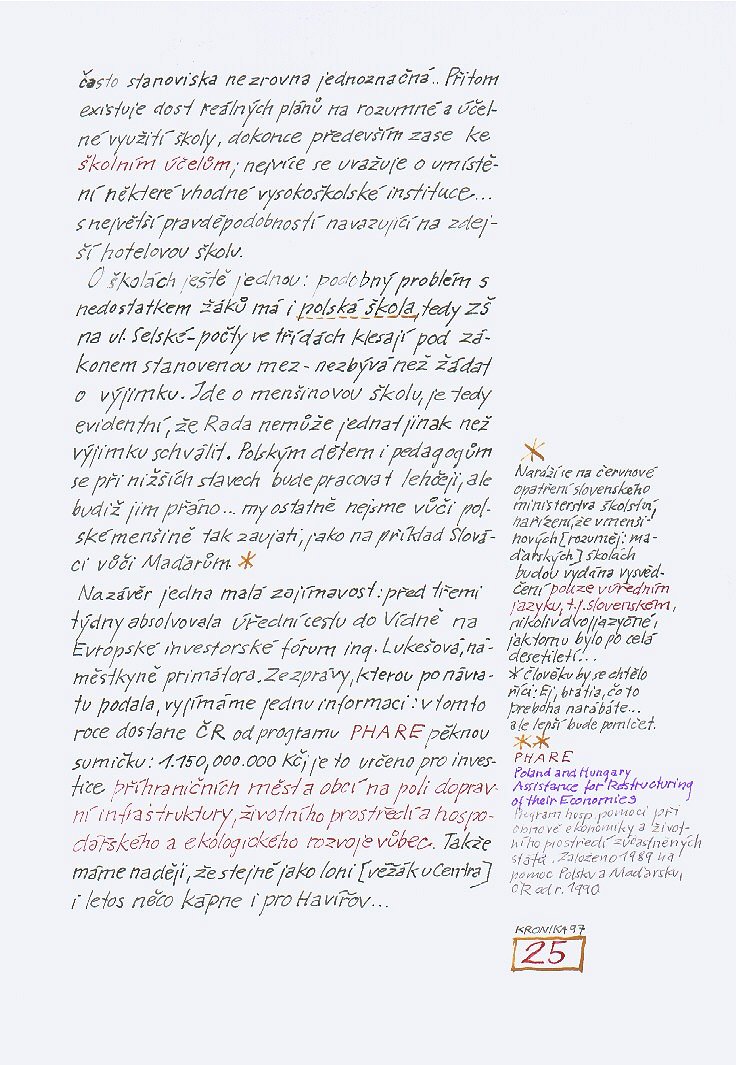 často stanoviska ne zrovna jednoznačná.. Přitom
existuje dost reálných plánů na rozumné a účel-
né využití školy, dokonce především zase ke
školním účelům; nejvíce se uvažuje o umístě-
ní některé vhodné vysokoškolské instituce...
s největší pravděpodobností navazující na zdej-
ší hotelovou školu.
O školách ještě jednou: podobný problém s
nedostatkem žáků má i polská škola, tedy ZŠ
na ul. Selské - počty ve třídách klesají pod zá-
konem stanovenou mez - nezbývá než žádat
o výjimku. Jde o menšinovou školu, je tedy
evidentní, že Rada nemůže jednat jinak než
výjimku schválit. Polským dětem i pedagogům
se při nižších stavech bude pracovat lehčeji, ale
budiž jim přáno... my ostatně nejsme vůči pol-
ské menšině tak zaujati, jako na příklad Slová-
ci vůči Maďarům. *
Na závěr jedna malá zajímavost: před třemi
týdny absolvovala úřední cestu do Vídně na
Evropské investorské fórum ing. Lukešová, ná-
městkyně primátora. Ze zprávy, kterou po návra-
tu podala, vyjímáme jednu informaci: v tomto
roce dostane ČR od programu PHARE pěknou
sumičku: 1.150,000.000 Kč, je to určeno pro inves-
tice příhraničních měst a obcí na poli doprav-
ní infrastruktury, životního prostředí a hospo-
dářského a ekologického rozvoje vůbec. Takže
máme naději, že stejně jako loni [věžák u Centra]
i letos něco kápne i pro Havířov...
*
Naráží se na červnové
opatření slovenského
ministerstva školství,
nařízení, že v menši-
nových [rozuměj: ma-
ďarských] školách
budou vydána vysvěd-
čení pouze v úředním
jazyku, t.j. slovenském,
nikoliv dvojjazyčné,
jak tomu bylo po celá
desetiletí...
* člověku by se chtělo
říci: Ej, bratia, čo to
preboha narábáte...
ale lepší bude pomlčet.
**
PHARE
Poland and Hungary
Assistance for Restructuring
of their Economies
Program hosp. pomoci při
obnově ekonomiky a život-
ního prostředí zúčastněných
států. Založeno 1989 na
pomoc Polsku a Maďarsku,
ČR od r. 1990
KRONIKA 97
25